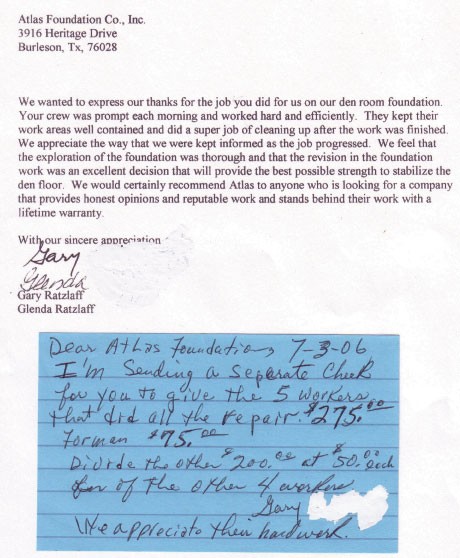 Atlas Foundation Co., Inc.
3916 Heritage Drive
Burleson, Tx, 76028
We wanted to express our thanks for the job you did for us on our den room foundation.
Your crew was prompt each morning and worked hard and efficiently. They kept their
work areas well contained and did a super job of cleaning up after the work was finished.
We appreciate the way that we were kept informed as the job progressed. We feel that
the exploration of the foundation was thorough and that the revision in the foundation
work was an excellent decision that will provide the best possible strength to stabilize the
den floor. We would certainly recommend Atlas to anyone who is looking for a company
that provides honest opinions and reputable work and stands behind their work with a
lifetime warranty.
With our sincere appreciation
Gary
Glenda
Gary Ratzlaff
Glenda Ratzlaff
Dear Atlas Foundation, 7-3-06
I'm Sending a Seperate Check
for you to give the 5 workers
that did all the repair. $275.00
Forman $75.00
Divide the other $200.00 at $50.00 each
for of the other 4 workers
Gary
We appreciate their hardwork.